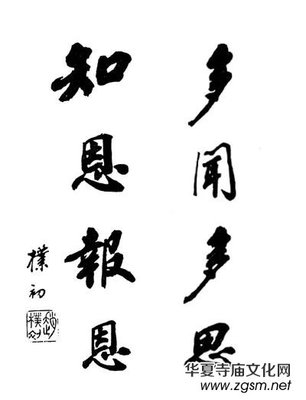 多聞多思
知恩報恩
樸初
趙樸初
华夏寺庙文化网
www.zgsm.net